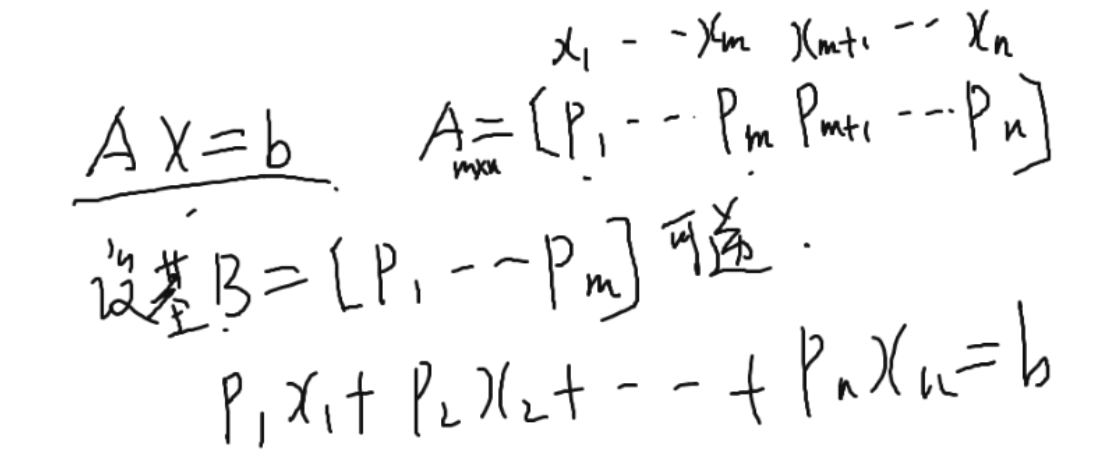 x₁ - - xₘ xₘ₊₁ -- xₙ
AX=b A=[P₁ --- Pₘ Pₘ₊₁ --- Pₙ]
m×n
设基B=[P₁ --- Pₘ]可逆.
P₁x₁+P₂x₂+ --- +Pₙxₙ=b